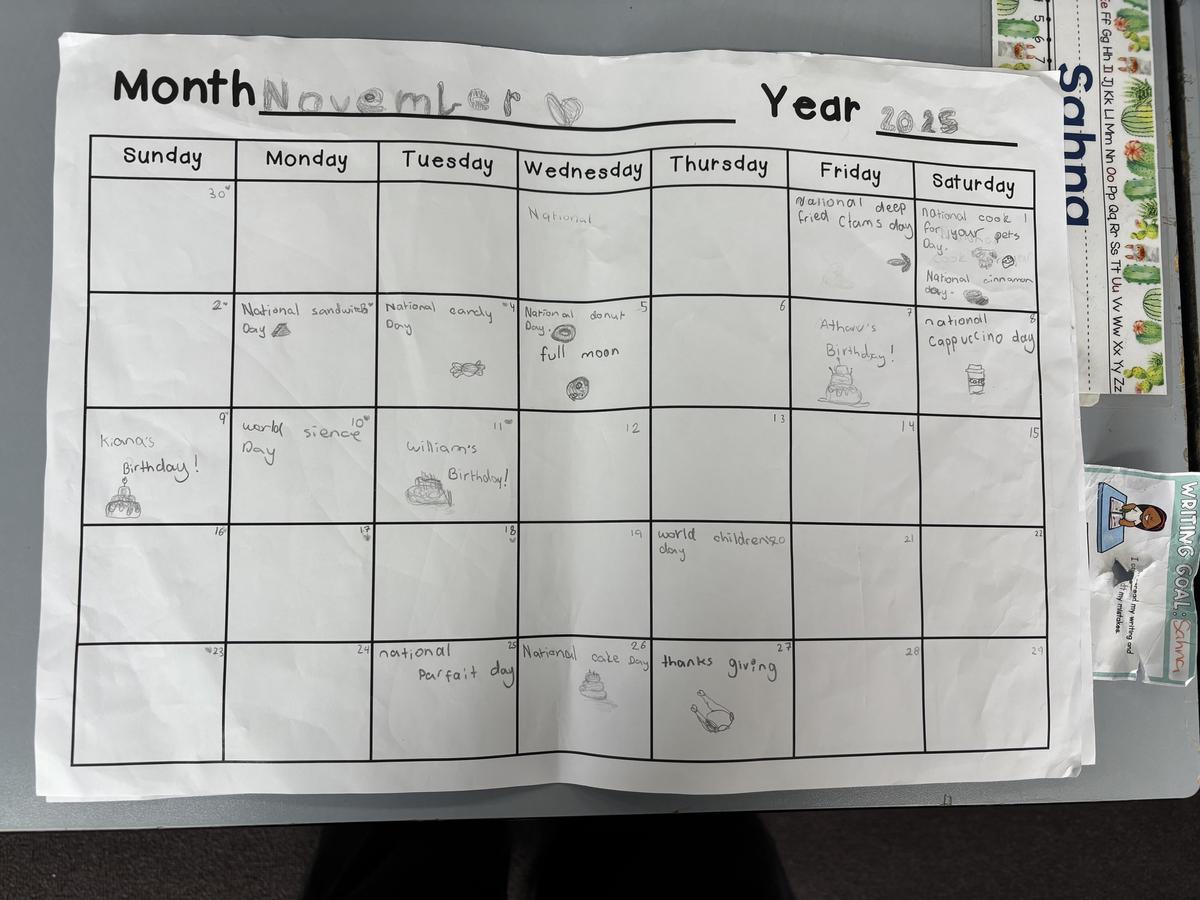 Month November Year 2025
Sunday Monday Tuesday Wednesday Thursday Friday Saturday
30
National
National deep
fried clams day
national cook 1
for your pets
Day.
National cinnamon
day.
2
National sandwich 3
Day
National candy 4
Day
National donut 5
Day.
full moon
6
7
Atharv's
Birthday!
national 8
cappuccino day
9
Kiana's
Birthday!
10
world sience
Day
11
William's
Birthday!
12
13
14
15
16
17
18
19
world childrens 20
day
21
22
23
24
national 25
Parfait day
26
National cake Day
27
thanks giving
28
29
Sahna
5 6 7
Ff Gg Hh Ii Jj Kk Ll Mm Nn Oo Pp Qq Rr Ss Tt Uu Vv Ww Xx Yy Zz
WRITING GOAL: Sahna
my writing and
my mistakes.